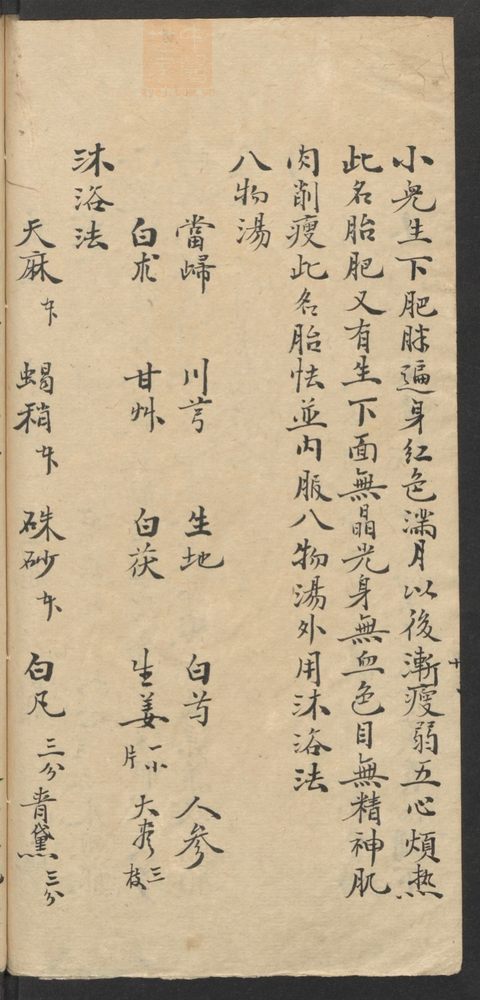 小兒生下肥胖遍身紅色滿月以後漸瘦弱五心煩热
此名胎肥又有生下面無晶光身無血色目無精神肌
肉削瘦此名胎怯並内服八物湯外用沐浴法
八物湯
當歸 川芎 生地 白芍 人參
白朮 甘艸 白茯 生姜一小片 大枣三枝
沐浴法
天麻 蝎稍 硃砂 白凡三分 青黛三分